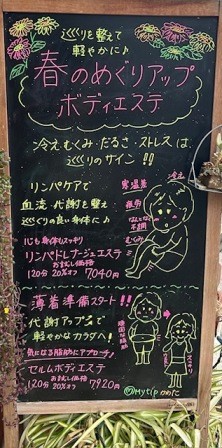 めぐりを整えて
軽やかに♪
春のめぐりアップ
ボディエステ
冷え・むくみ・だるさ・ストレスは、
めぐりのサイン!!
リンパケアで
血流・代謝を整え
めぐりの良い身体に♪
冷え
寒暖差
疲労
なんとなく
不調
むくみ
心も身体もスッキリ
リンパドレナージュエステ
お試し価格
120分 20%オフ 7040円
薄着準備スタート!!
代謝アップで
軽やかなカラダへ!
気になる脂肪にアプローチ!
セルムボディエステ
お試し価格
120分 20%オフ 7,920円
スッキリ